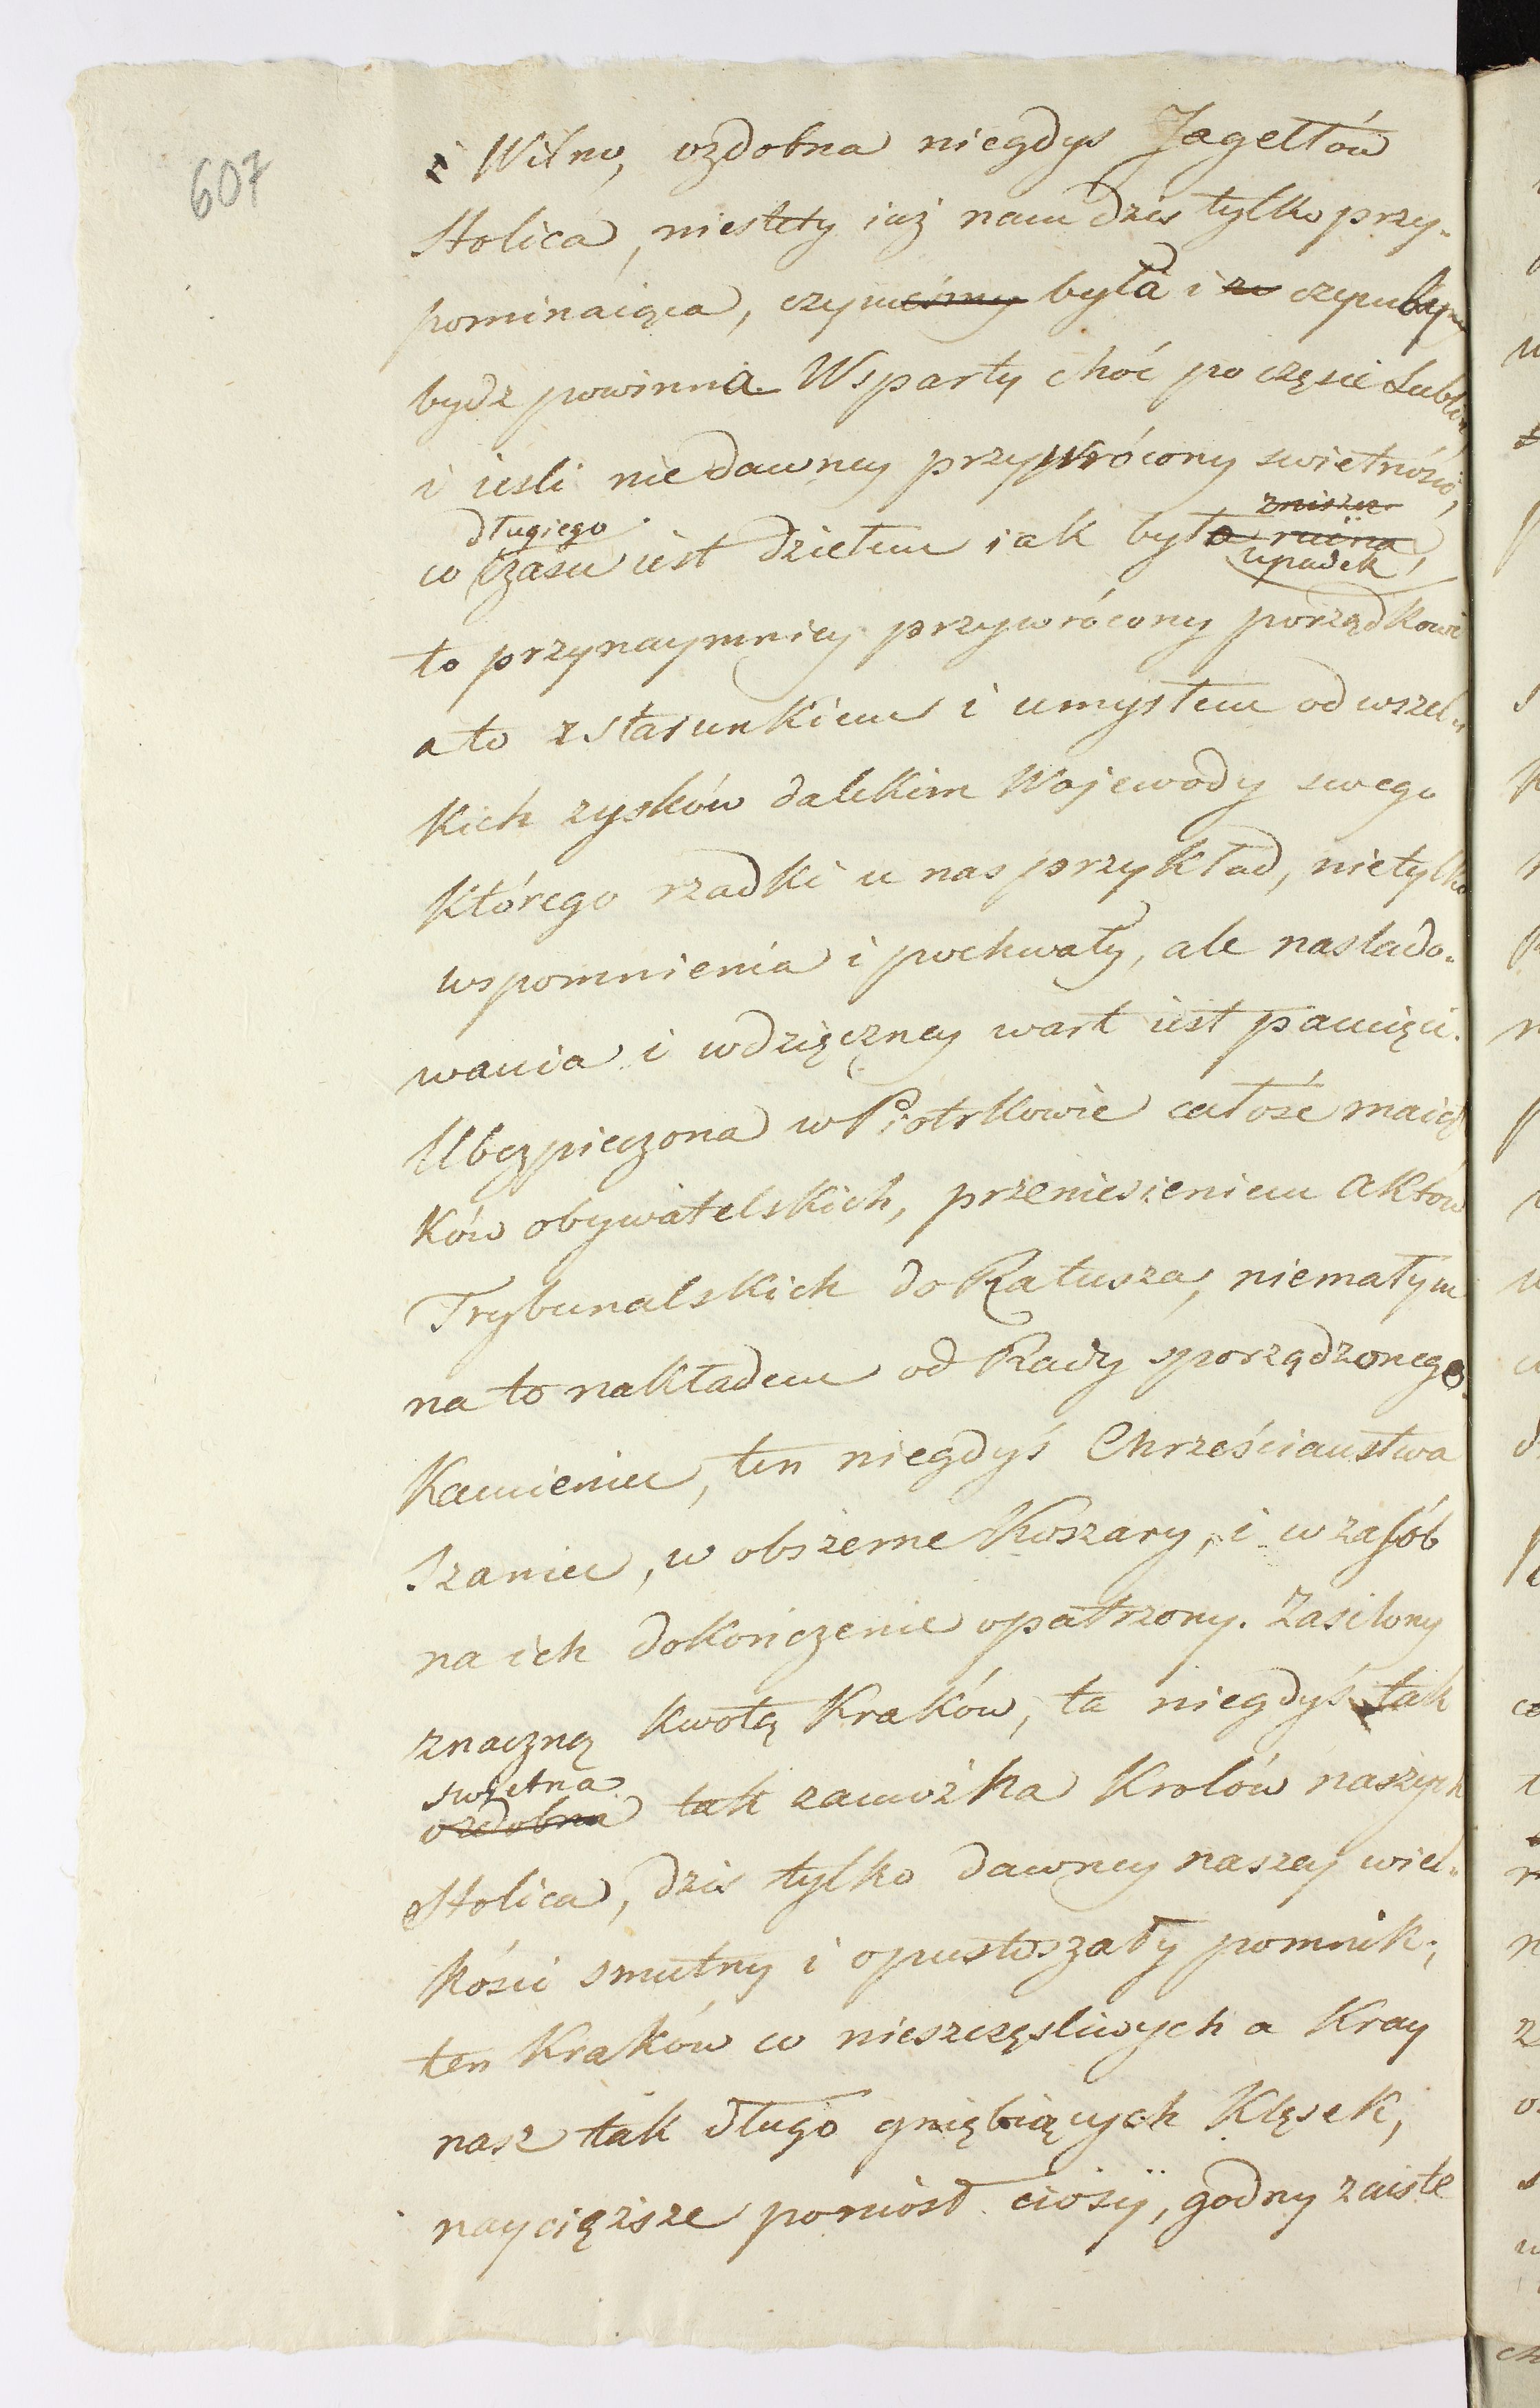 607
i Wilno, ozdobna niegdys Jagełłów
Stolica, niestety iuż nam dzis tylko przy-
pominaiąca, czym eśmy była i ze czymby
bydz powinna. Wsparty choć po części Lublin
i ieśli nie dawney przywrócony swietności,
długiego zniszcz
co czasu iest dziełem iak była ruina,
upadek
to przynaymniey przywrócony porządkowi
a to z starunkiem i umysłem od wszel-
kich zysków dalekim Wojewody swego
którego rzadki u nas przykład, nietylko
wspomnienia i pochwały, ale naslado-
wania i wdzięczney wart iest pamięci.
Ubezpieczona w Piotrkowie całość maiąt
ków obywatelskich, przeniesieniem Aktów
Trybunalskich do Ratusza, niemałym
na to nakładem od Rady sporządzonego.
Kamieniec, ten niegdyś Chrześciaństwa
Szaniec, w obszerne Koszary, i w zasób
na ich dokończenie opatrzony. Zasilony
znaczną kwotą Kraków, ta niegdyś tak
swietna
ozdobna tak zamożna Krolów naszych
Stolica, dzis tylko dawney naszey wiel-
kości smutny i opustoszały pomnik;
ten Kraków co nieszczęsliwych a Kray
nasz tak długo gnębiących klęsek,
naycięższe poniosł ciosÿ, godny zaiste